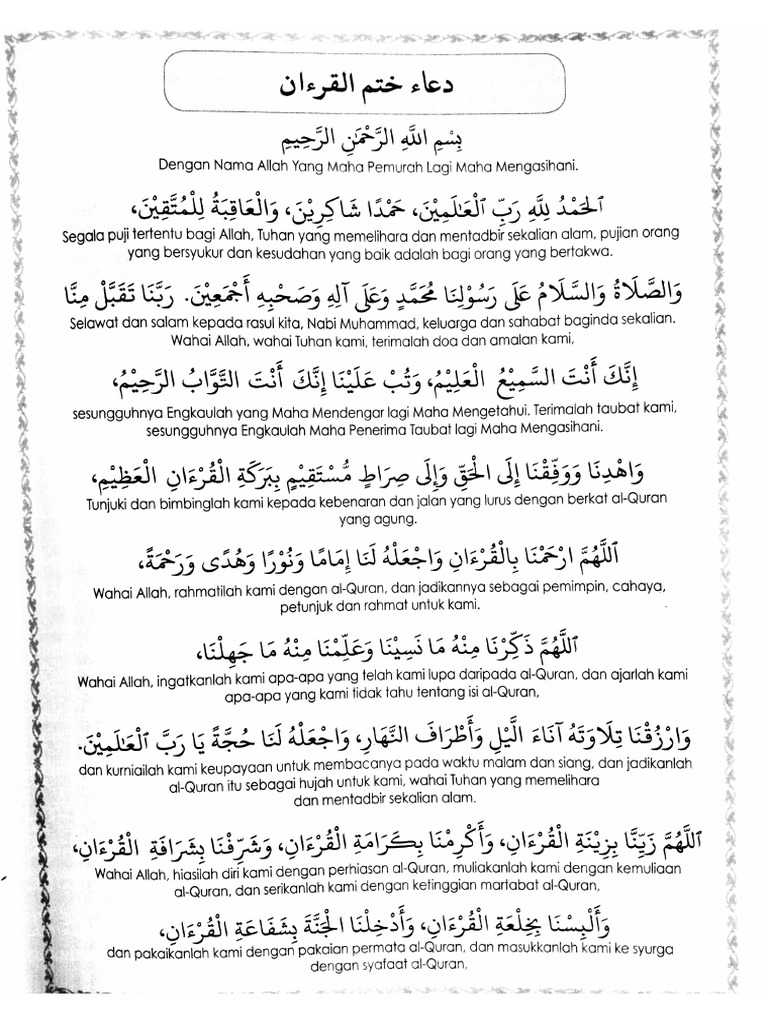 دعاء ختم القرءان
بِسْمِ اللَّهِ الرَّحْمَٰنِ الرَّحِيمِ
Dengan Nama Allah Yang Maha Pemurah Lagi Maha Mengasihani.
اَلْحَمْدُ لِلَّهِ رَبِّ الْعَٰلَمِيْنَ، حَمْدًا شَاكِرِيْنَ، وَالْعَاقِبَةُ لِلْمُتَّقِيْنَ،
Segala puji tertentu bagi Allah, Tuhan yang memelihara dan mentadbir sekalian alam, pujian orang
yang bersyukur dan kesudahan yang baik adalah bagi orang yang bertakwa.
وَالصَّلَاةُ وَالسَّلَامُ عَلَى رَسُوْلِنَا مُحَمَّدٍ وَعَلَى آلِهِ وَصَحْبِهِ أَجْمَعِيْنَ. رَبَّنَا تَقَبَّلْ مِنَّا
Selawat dan salam kepada rasul kita, Nabi Muhammad, keluarga dan sahabat baginda sekalian.
Wahai Allah, wahai Tuhan kami, terimalah doa dan amalan kami,
إِنَّكَ أَنْتَ السَّمِيْعُ الْعَلِيْمُ، وَتُبْ عَلَيْنَا إِنَّكَ أَنْتَ التَّوَّابُ الرَّحِيْمُ،
sesungguhnya Engkaulah yang Maha Mendengar lagi Maha Mengetahui. Terimalah taubat kami,
sesungguhnya Engkaulah Maha Penerima Taubat lagi Maha Mengasihani.
وَاهْدِنَا وَوَفِّقْنَا إِلَى الْحَقِّ وَإِلَى صِرَاطٍ مُّسْتَقِيْمٍ بِبَرَكَةِ الْقُرْءَانِ الْعَظِيْمِ،
Tunjuki dan bimbinglah kami kepada kebenaran dan jalan yang lurus dengan berkat al-Quran
yang agung.
اَللَّهُمَّ ارْحَمْنَا بِالْقُرْءَانِ وَاجْعَلْهُ لَنَا إِمَامًا وَنُوْرًا وَهُدًى وَرَحْمَةً،
Wahai Allah, rahmatilah kami dengan al-Quran, dan jadikannya sebagai pemimpin, cahaya,
petunjuk dan rahmat untuk kami.
اَللَّهُمَّ ذَكِّرْنَا مِنْهُ مَا نَسِيْنَا وَعَلِّمْنَا مِنْهُ مَا جَهِلْنَا،
Wahai Allah, ingatkanlah kami apa-apa yang telah kami lupa daripada al-Quran, dan ajarlah kami
apa-apa yang kami tidak tahu tentang isi al-Quran,
وَارْزُقْنَا تِلَاوَتَهُ آنَاءَ الَّيْلِ وَأَطْرَافَ النَّهَارِ، وَاجْعَلْهُ لَنَا حُجَّةً يَا رَبَّ الْعَٰلَمِيْنَ.
dan kurniailah kami keupayaan untuk membacanya pada waktu malam dan siang, dan jadikanlah
al-Quran itu sebagai hujah untuk kami, wahai Tuhan yang memelihara
dan mentadbir sekalian alam.
اَللَّهُمَّ زَيِّنَّا بِزِيْنَةِ الْقُرْءَانِ، وَأَكْرِمْنَا بِكَرَامَةِ الْقُرْءَانِ، وَشَرِّفْنَا بِشَرَافَةِ الْقُرْءَانِ،
Wahai Allah, hiasilah diri kami dengan perhiasan al-Quran, muliakanlah kami dengan kemuliaan
al-Quran, dan serikanlah kami dengan ketinggian martabat al-Quran,
وَأَلْبِسْنَا بِخِلْعَةِ الْقُرْءَانِ، وَأَدْخِلْنَا الْجَنَّةَ بِشَفَاعَةِ الْقُرْءَانِ،
dan pakaikanlah kami dengan pakaian permata al-Quran, dan masukkanlah kami ke syurga
dengan syafaat al-Quran,